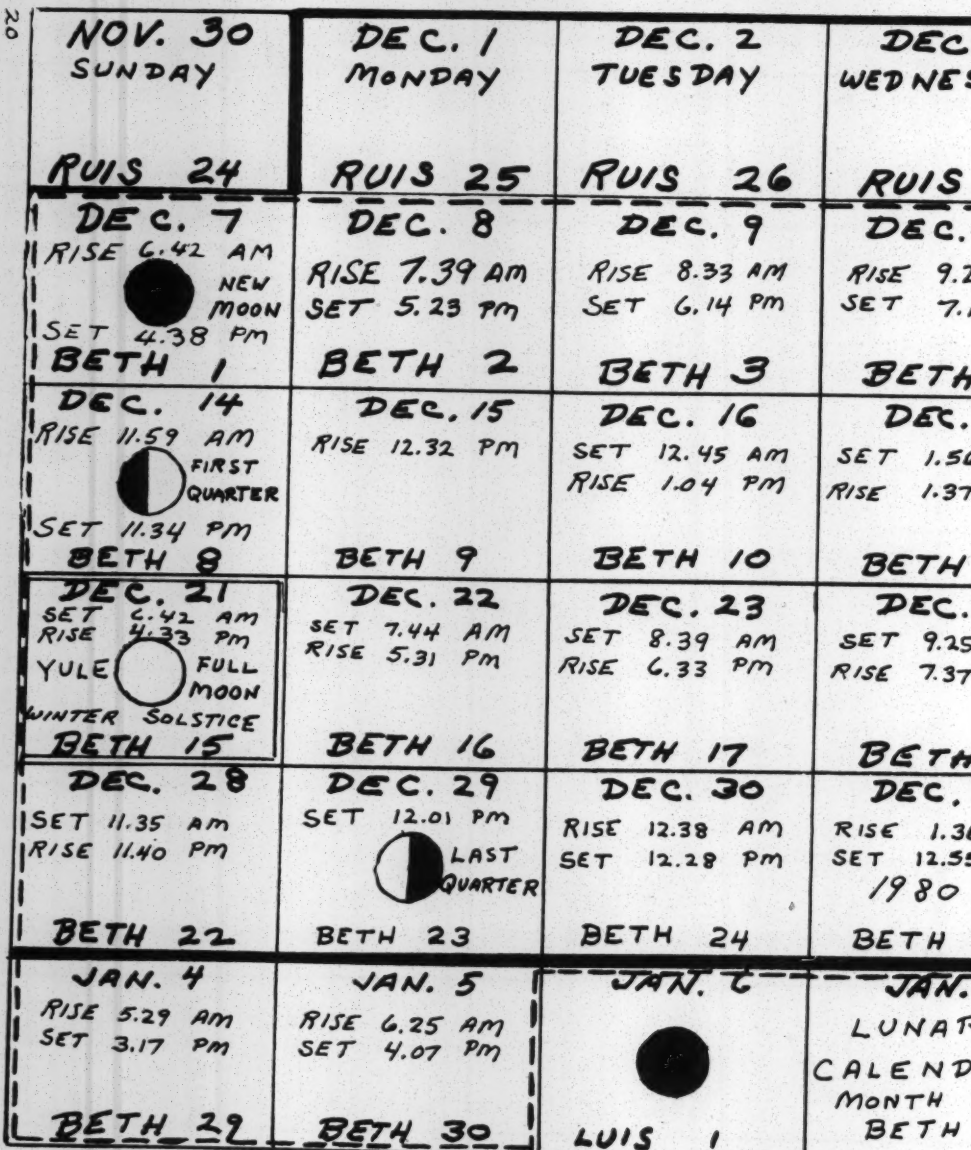 20
NOV. 30
SUNDAY
RUIS 24
DEC. 1
MONDAY
RUIS 25
DEC. 2
TUESDAY
RUIS 26
DEC
WEDNES
RUIS
DEC. 7
RISE 6.42 AM
NEW
MOON
SET 4.38 PM
BETH 1
DEC. 8
RISE 7.39 AM
SET 5.23 PM
BETH 2
DEC. 9
RISE 8.33 AM
SET 6.14 PM
BETH 3
DEC.
RISE 9.2
SET 7.1
BETH
DEC. 14
RISE 11.59 AM
FIRST
QUARTER
SET 11.34 PM
BETH 8
DEC. 15
RISE 12.32 PM
BETH 9
DEC. 16
SET 12.45 AM
RISE 1.04 PM
BETH 10
DEC.
SET 1.56
RISE 1.37
BETH
DEC. 21
SET 6.42 AM
RISE 4.33 PM
YULE FULL
MOON
WINTER SOLSTICE
BETH 15
DEC. 22
SET 7.44 AM
RISE 5.31 PM
BETH 16
DEC. 23
SET 8.39 AM
RISE 6.33 PM
BETH 17
DEC.
SET 9.25
RISE 7.37
BETH
DEC. 28
SET 11.35 AM
RISE 11.40 PM
BETH 22
DEC. 29
SET 12.01 PM
LAST
QUARTER
BETH 23
DEC. 30
RISE 12.38 AM
SET 12.28 PM
BETH 24
DEC.
RISE 1.36
SET 12.55
1980
BETH
JAN. 4
RISE 5.29 AM
SET 3.17 PM
BETH 29
JAN. 5
RISE 6.25 AM
SET 4.07 PM
BETH 30
JAN. 6
LUIS 1
JAN.
LUNAR
CALEND
MONTH
BETH